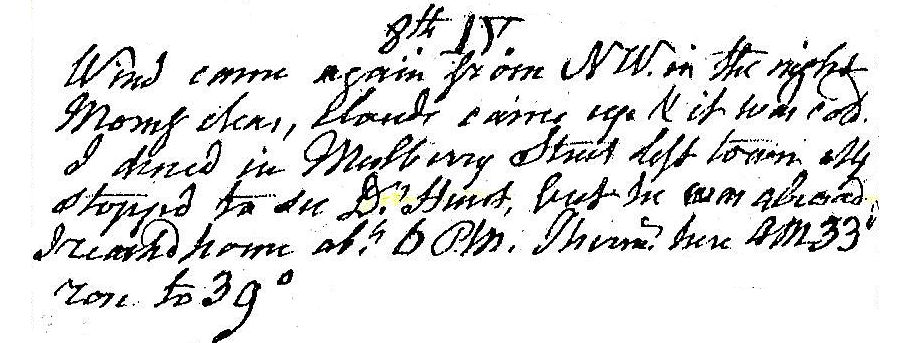 8th IV
Wind came again from NW. in the night
Morng clear, Clouds came up & it was cold.
I dined in Mulberry Street left town
stopped to see Dr. Hunt, but he was abroad
I reachd home abt 6 PM. Therm. here AM 33°
rose to 39°